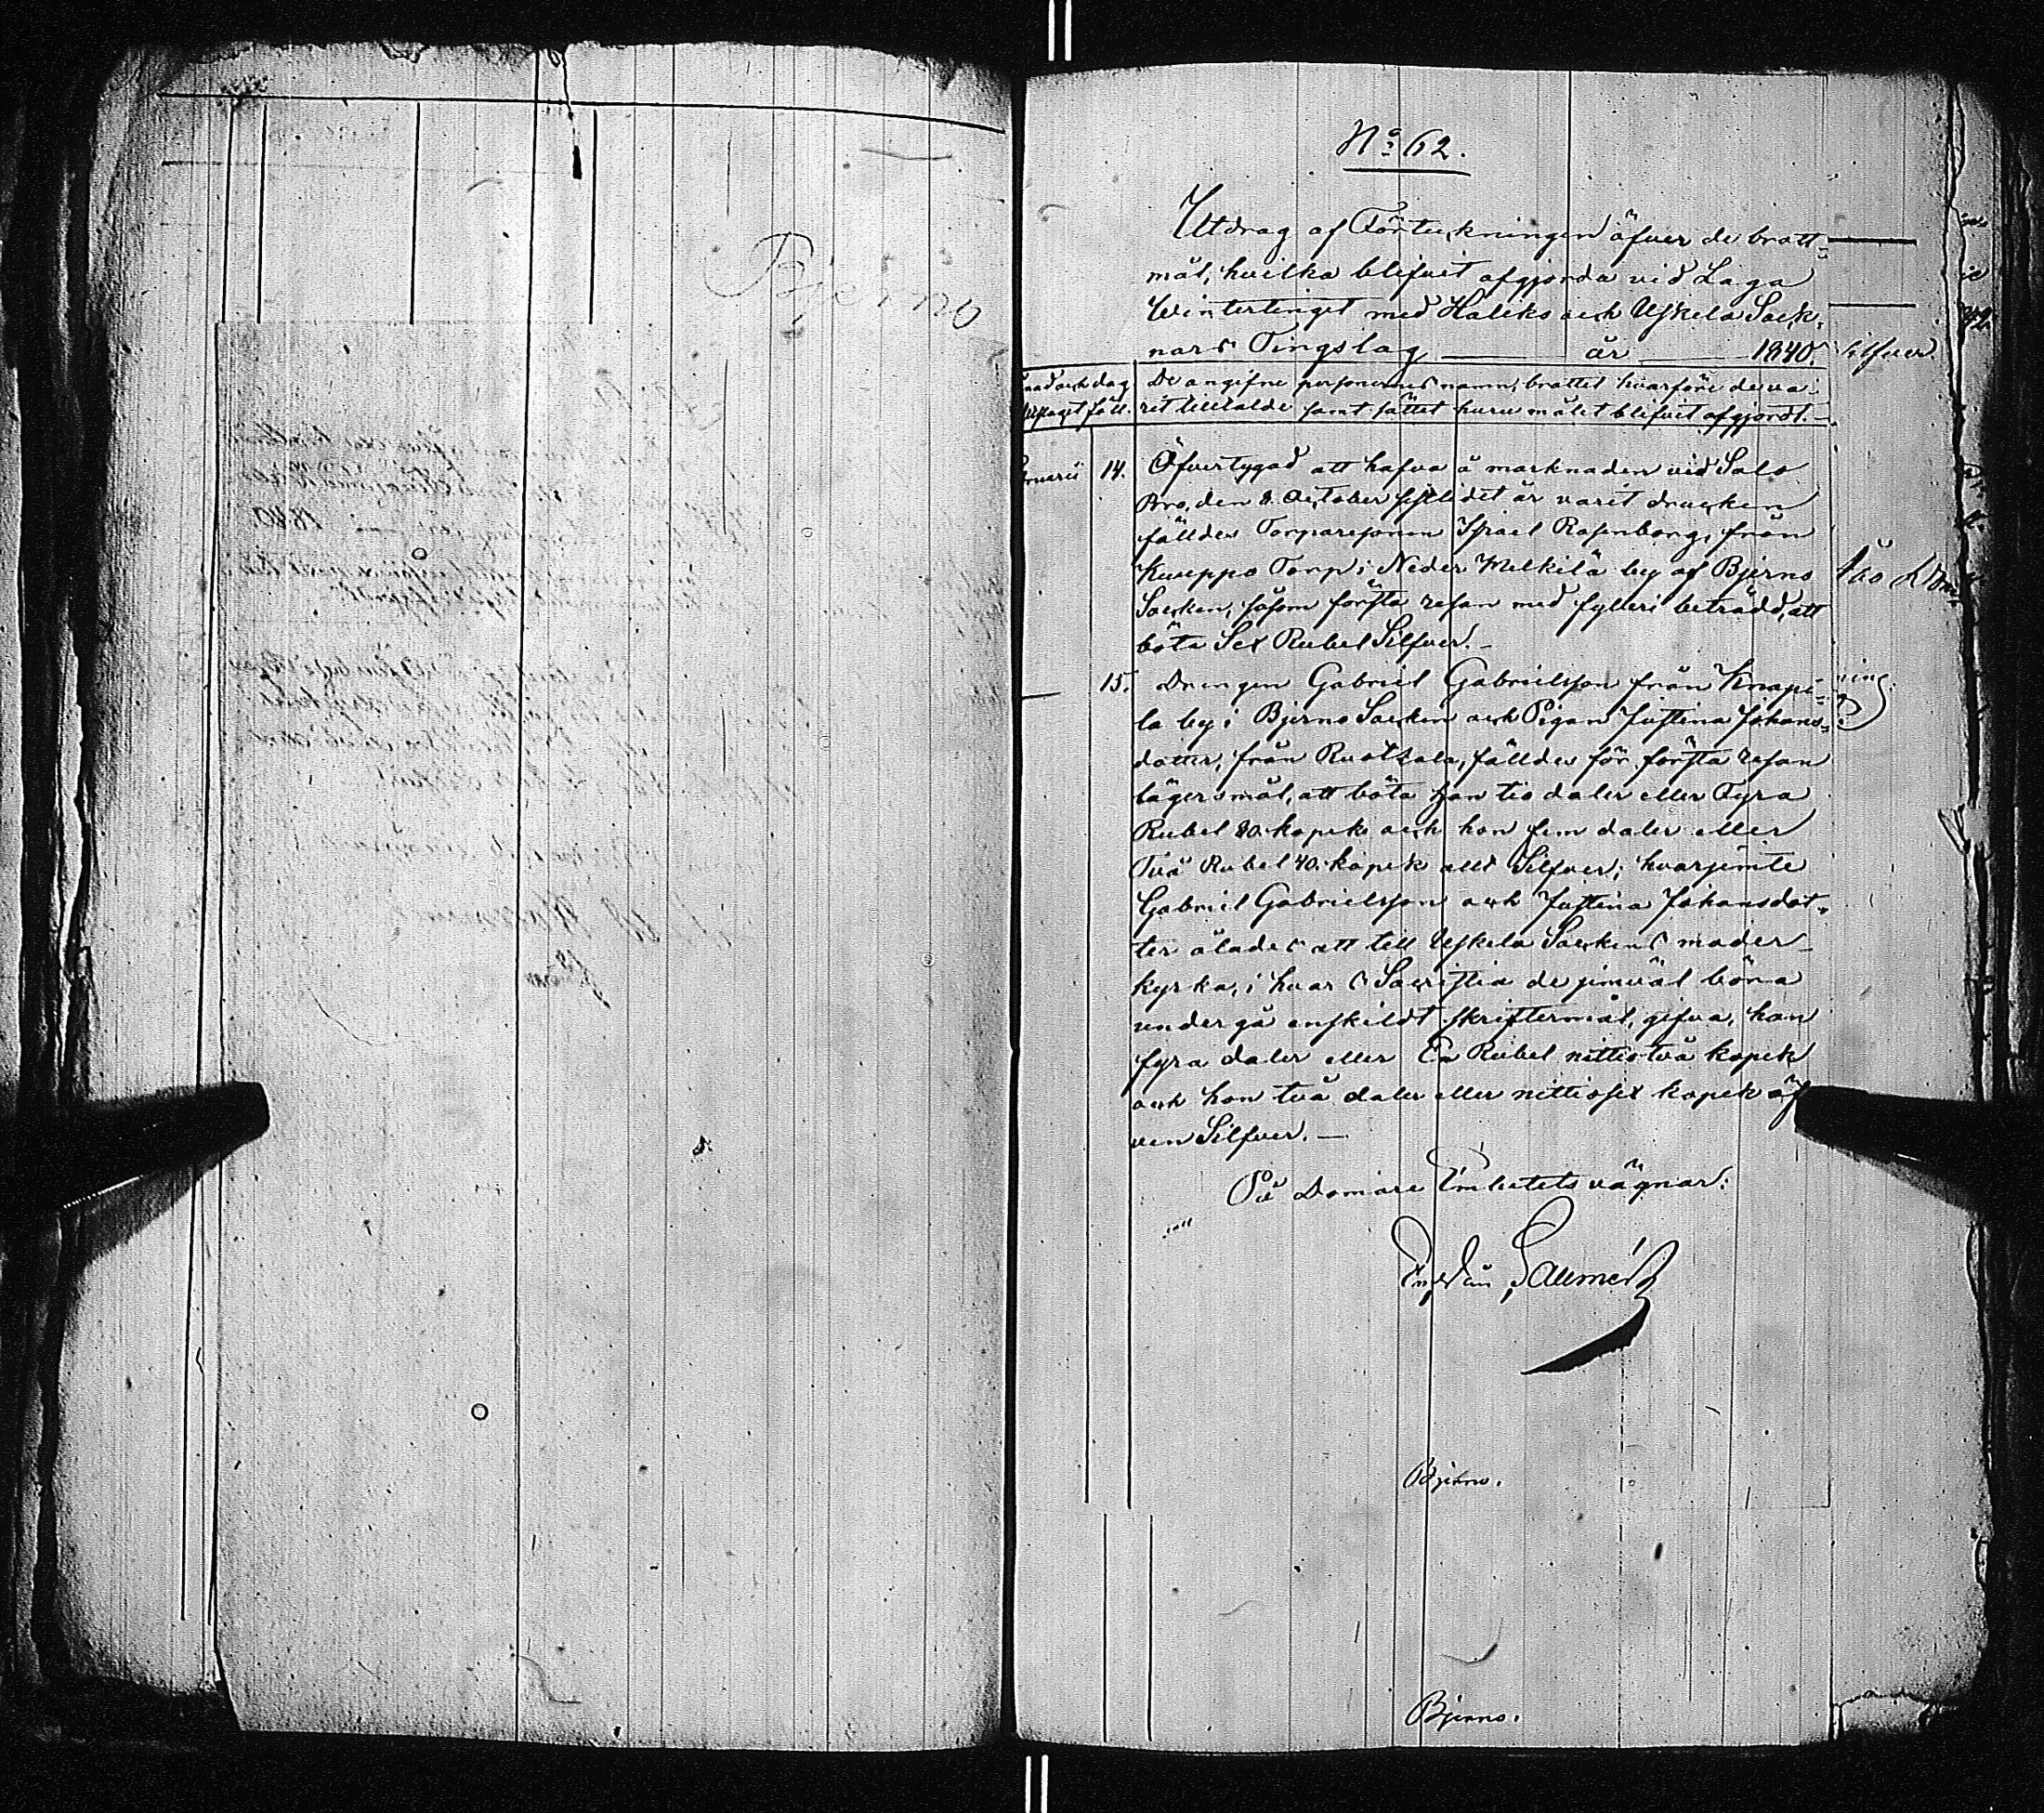 Bjerno
No 62.
Utdrag af Förteckningen öfver de brott-
mål, hvilka blifvit afgjorda vid Laga
Wintertinget med Haliko och Uskela Sock-
nars Tingslag år 1840.
Silfver
nad och dag De angifne personernes namn, brottet hvarföre de va-
utslaget föll. rit tilltalde samt sättet huru målet blifvit afgjordt.
bruarii 14. Öfvertygad att hafva å marknaden vid Salo
Bro, den 8 October sistledet år varit drucken
fälldes Torparesonen Israel Rosenborg, från
Kuseppo Torp i Neder Melkilä by af Bjerno
Socken, såsom första resan med fylleri beträdd, att
böta Sex Rubel Silfver.
15. Drengen Gabriel Gabrielsson från Knapi-
la by i Bjerno Socken och Pigan Justina Johans-
dotter, från Ruotsala, fälldes för första resan
lägersmål, att böta han tio daler eller Fyra
Rubel 80 kopek och hon fem daler eller
Två Rubel 40 kopek allt Silfver; hvarjemte
Gabriel Gabrielsson och Justina Johansdot-
ter ålades att till Uskela Sockens moder-
kyrka, i hvars Sacristia de jemväl böra
undergå enskildt skriftermål, gifva, han
fyra daler eller En Rubel nittiotvå kopek
och hon två daler eller nittiosex kopek äf
ven Silfver.
På Domare Embetets vägnar:
Bjerno.
Bjerno.